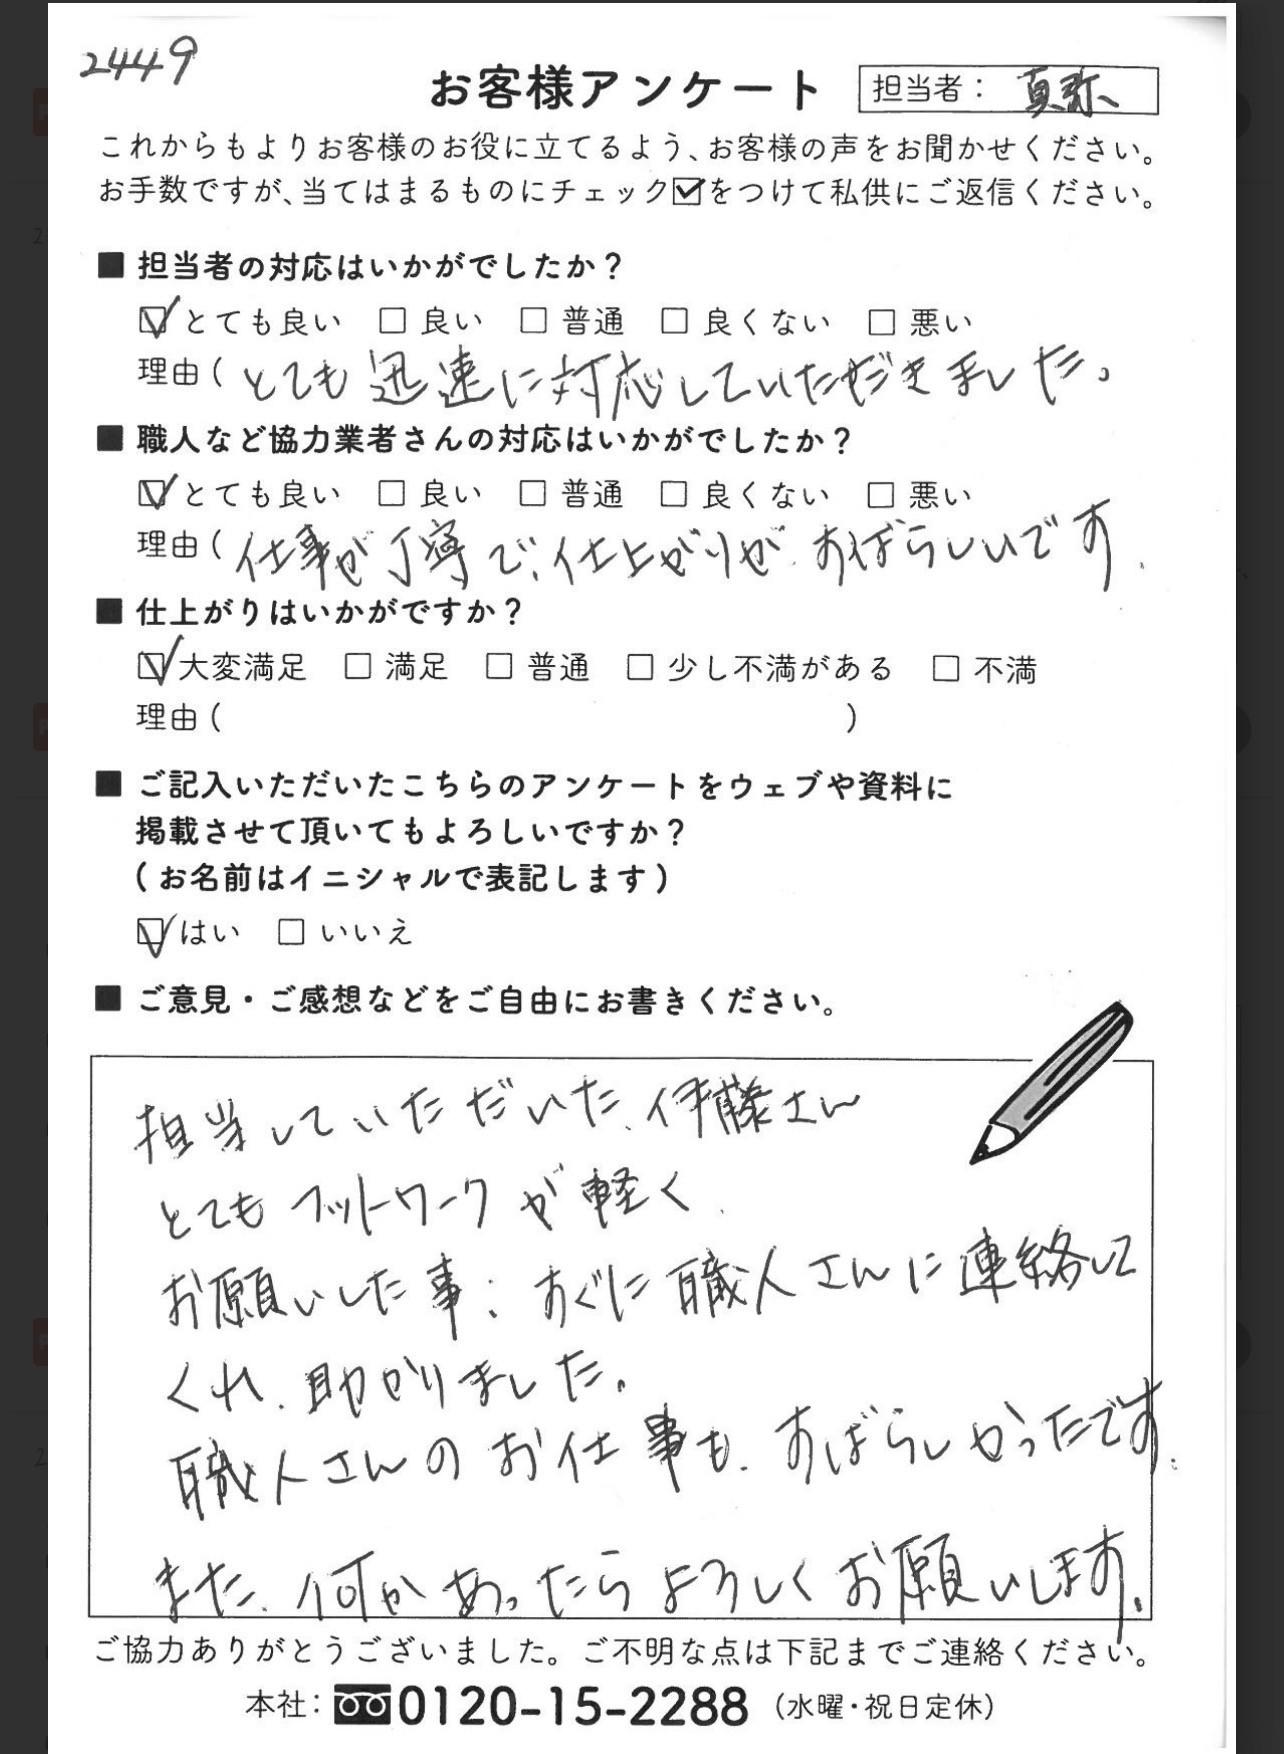 2449
お客様アンケート
担当者： 真弥
これからもよりお客様のお役に立てるよう、お客様の声をお聞かせください。
お手数ですが、当てはまるものにチェック☑をつけて私供にご返信ください。
■ 担当者の対応はいかがでしたか？
☑とても良い □ 良い □ 普通 □ 良くない □ 悪い
理由（とても迅速に対応していただきました。
■ 職人など協力業者さんの対応はいかがでしたか？
☑とても良い □ 良い □ 普通 □ 良くない □ 悪い
理由（仕事が丁寧で、仕上がりが、すばらしいです、
■ 仕上がりはいかがですか？
☑大変満足 □ 満足 □ 普通 □ 少し不満がある □ 不満
理由（ ）
■ ご記入いただいたこちらのアンケートをウェブや資料に
掲載させて頂いてもよろしいですか？
（お名前はイニシャルで表記します）
☑はい □ いいえ
■ ご意見・ご感想などをご自由にお書きください。
担当していただいた、伊藤さん
とてもフットワークが軽く、
お願いした事、すぐに職人さんに連絡して
くれ、助かりました。
職人さんのお仕事も、すばらしかったです。
また、何かあったらよろしくお願いします。
ご協力ありがとうございました。ご不明な点は下記までご連絡ください。
本社： 0120-15-2288 （水曜・祝日定休）